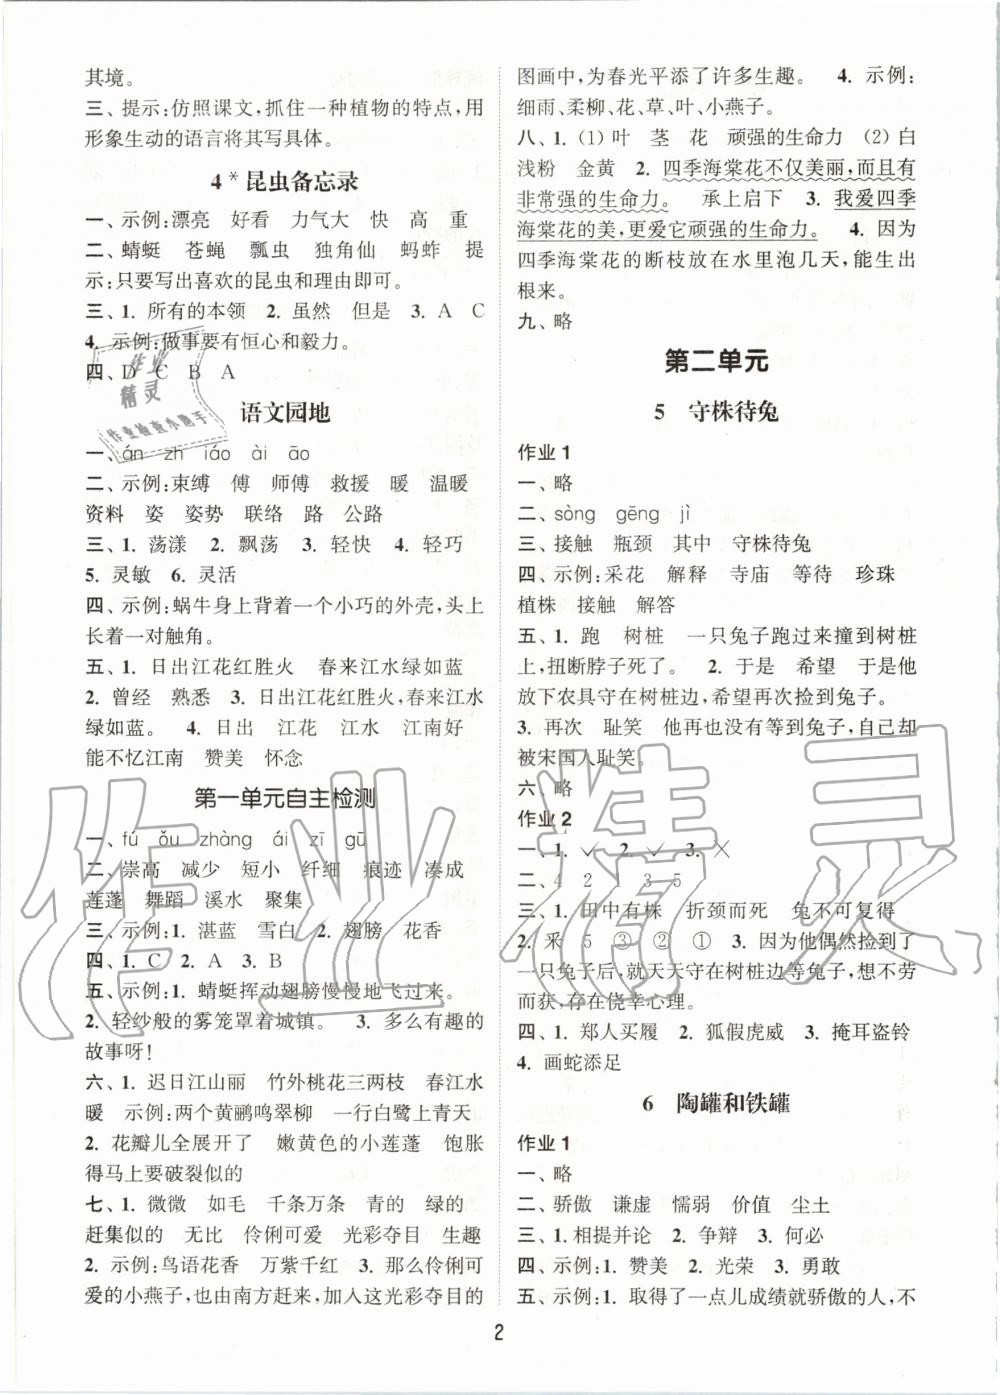 其境。
三、提示:仿照课文,抓住一种植物的特点,用
形象生动的语言将其写具体。
4*昆虫备忘录
一、示例:漂亮 好看 力气大 快 高 重
二、蜻蜓 苍蝇 瓢虫 独角仙 蚂蚱 提
示:只要写出喜欢的昆虫和理由即可。
三、1. 所有的本领 2. 虽然 但是 3. A C
4. 示例:做事要有恒心和毅力。
四、D C B A
语文园地
一、án zh iáo ài āo
二、示例:束缚 傅 师傅 救援 暖 温暖
资料 姿 姿势 联络 路 公路
三、1. 荡漾 2. 飘荡 3. 轻快 4. 轻巧
5. 灵敏 6. 灵活
四、示例:蜗牛身上背着一个小巧的外壳,头上
长着一对触角。
五、1. 日出江花红胜火 春来江水绿如蓝
2. 曾经 熟悉 3. 日出江花红胜火,春来江水
绿如蓝。 4. 日出 江花 江水 江南好
能不忆江南 赞美 怀念
第一单元自主检测
一、fú ǒu zhàng ái zī gū
二、崇高 减少 短小 纤细 痕迹 凑成
莲蓬 舞蹈 溪水 聚集
三、示例:1. 湛蓝 雪白 2. 翅膀 花香
四、1. C 2. A 3. B
五、示例:1. 蜻蜓挥动翅膀慢慢地飞过来。
2. 轻纱般的雾笼罩着城镇。 3. 多么有趣的
故事呀!
六、1. 迟日江山丽 竹外桃花三两枝 春江水
暖 示例:两个黄鹂鸣翠柳 一行白鹭上青天
2. 花瓣儿全展开了 嫩黄色的小莲蓬 饱胀
得马上要破裂似的
七、1. 微微 如毛 千条万条 青的 绿的
赶集似的 无比 伶俐可爱 光彩夺目 生趣
2. 示例:鸟语花香 万紫千红 3. 那么伶俐可
爱的小燕子,也由南方赶来,加入这光彩夺目的
图画中,为春光平添了许多生趣。 4. 示例:
细雨、柔柳、花、草、叶、小燕子。
八、1. (1)叶 茎 花 顽强的生命力 (2)白
浅粉 金黄 2. 四季海棠花不仅美丽,而且有
非常强的生命力。 承上启下 3. 我爱四季
海棠花的美,更爱它顽强的生命力。 4. 因为
四季海棠花的断枝放在水里泡几天,能生出
根来。
九、略
第二单元
5 守株待兔
作业1
一、略
二、sòng gēng jì
三、接触 瓶颈 其中 守株待兔
四、示例:采花 解释 寺庙 等待 珍珠
植株 接触 解答
五、1. 跑 树桩 一只兔子跑过来撞到树桩
上,扭断脖子死了。 2. 于是 希望 于是他
放下农具守在树桩边,希望再次捡到兔子。
3. 再次 耻笑 他再也没有等到兔子,自己却
被宋国人耻笑。
六、略
作业2
一、1. ✓ 2. ✓ 3. ✗
二、4 2 1 3 5
三、1. 田中有株 折颈而死 兔不可复得
2. 釆 5 ③ ② ① 3. 因为他偶然捡到了
一只兔子后,就天天守在树桩边等兔子,想不劳
而获,存在侥幸心理。
四、1. 郑人买履 2. 狐假虎威 3. 掩耳盗铃
4. 画蛇添足
6 陶罐和铁罐
作业1
一、略
二、骄傲 谦虚 懦弱 价值 尘土
三、1. 相提并论 2. 争辩 3. 何必
四、示例:1. 赞美 2. 光荣 3. 勇敢
五、示例:1. 取得了一点儿成绩就骄傲的人,不
2
作业
精灵
作业检查小助手
作业精灵